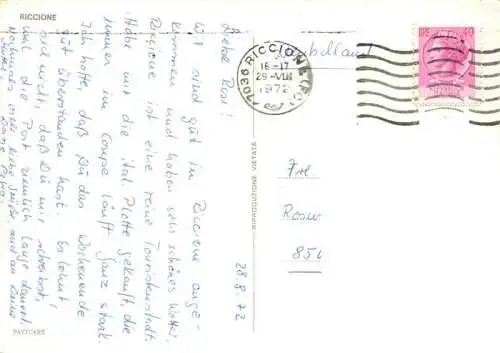 RICCIONE
Liebe Rosi!
Wir sind gut in Riccione ange-
kommen und haben sehr schönes Wetter.
Riccione ist eine reine Touristenstadt.
Habe mir die ital. Platte gekauft, die
immer im Coupe läuft ganz stark.
Ich hoffe, daß Du das Wochenende
gut überstanden hast. Es lohnt
sich nicht, daß Du mir schreibst,
weil die Post ziemlich lange dauert.
Nochmals liebe Grüße, auch an Deine
28.8.72
PARTCARS
RIPRODUZIONE VIETATA
47036 RICCIONE (FO)
16-17
29-VIII
1972
LIRE 40
Frl.
Rosw
850